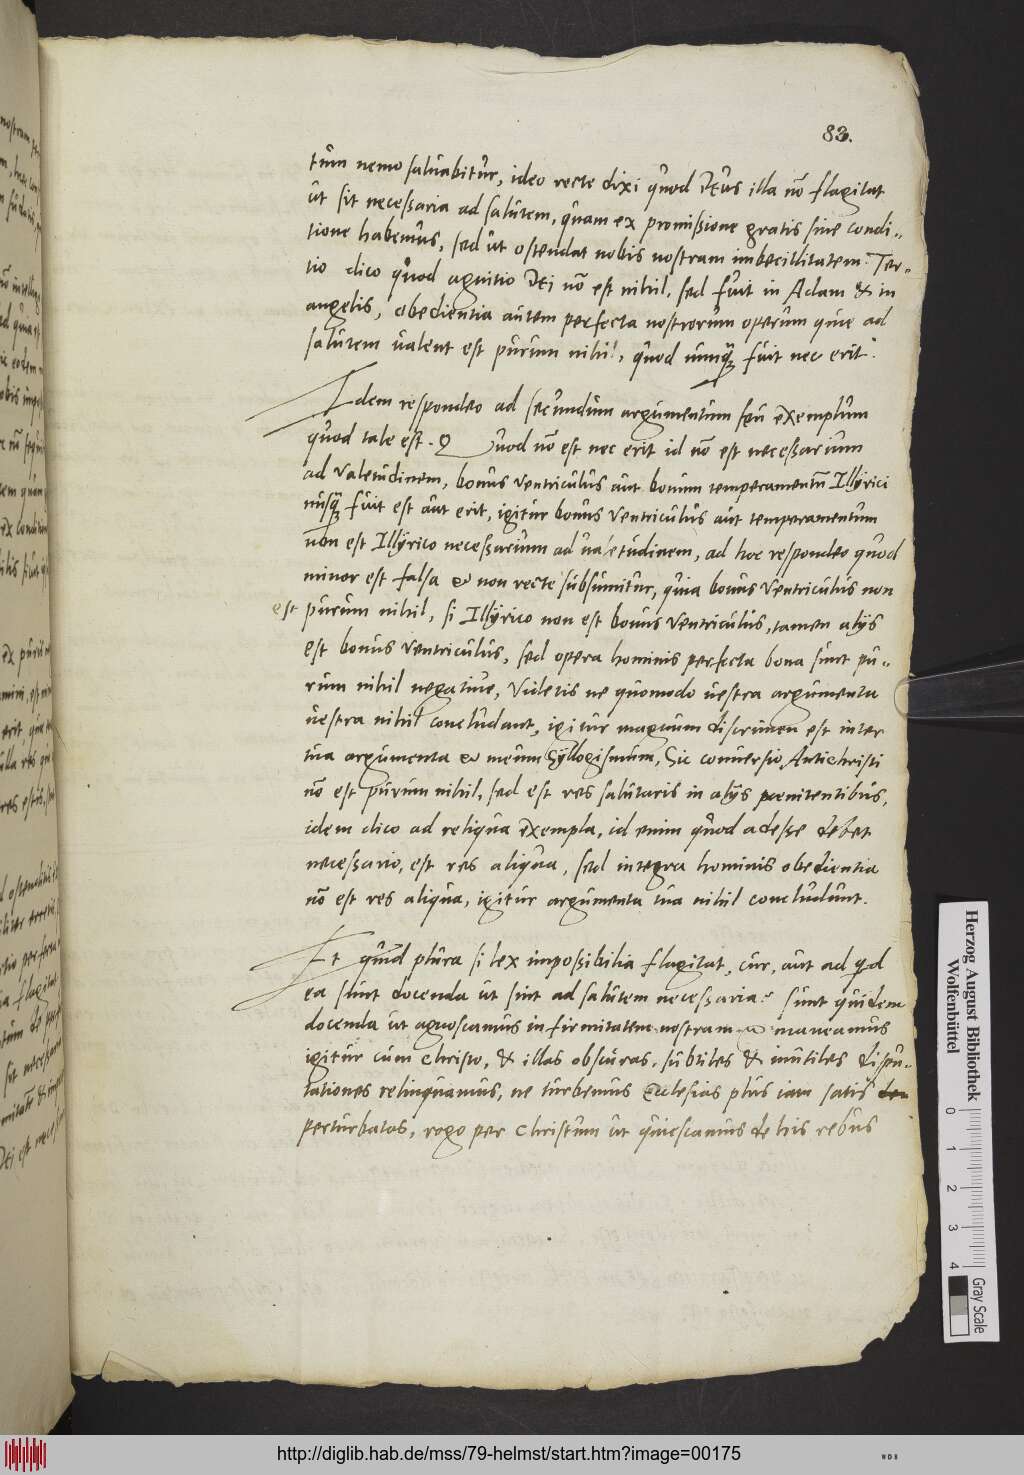 83.
tum nemo saluabitur, ideo recte dixi quod Deus illa nõ flagitat
ut sit necessaria ad salutem, quam ex promissione gratis sine condi-
tione habemus, sed ut ostendat nobis nostram imbecillitatem. Ter-
tio dico quod agnitio Dei nõ est nihil, sed fuit in Adam & in
angelis, obedientia autem perfecta nostrorum operum quae ad
salutem ualent est purum nihil, quod nunquã fuit nec erit.
Idem respondeo ad secundum argumentum seu exemplum
quod tale est. Quod nõ est nec erit id nõ est necessarium
ad valetudinem, bonus ventriculus aut bonum temperamentũ Illyrici
nusquã fuit est aut erit, igitur bonus ventriculus aut temperamentum
non est Illyrico necessarium ad ualetudinem, ad hoc respondeo quod
minor est falsa & non recte subsumitur, quia bonus ventriculus non
est purum nihil, si Illyrico non est bonus ventriculus, tamen alijs
est bonus ventriculus, sed opera hominis perfecta bona sunt pu-
rum nihil negatiue, Videtis ne quomodo uestra argumenta
uestra nihil concludant, igitur magnum discrimen est inter
tua argumenta & meum Syllogismum, Sic conuersio Antichristi
nõ est purum nihil, sed est res salutaris in alijs poenitentibus,
idem dico ad reliqua exempla, id enim quod adesse debet
necessario, est res aliqua, sed integra hominis obedientia
nõ est res aliqua, igitur argumenta tua nihil concludunt.
Et quid plura si lex impossibilia flagitat, cur, aut ad quid
ea sunt docenda ut sint ad salutem necessaria? sunt quidem
docenda ut agnoscamus infirmitatem nostram & maneamus
igitur cum Christo, & illas obscuras, subtiles & inutiles dispu-
tationes relinquamus, ne turbemus Ecclesias plus iam satis
perturbatas, rogo per Christum ut quiescamus de his rebus
Herzog August Bibliothek
Wolfenbüttel
0 1 2 3 4
Gray Scale
http://diglib.hab.de/mss/79-helmst/start.htm?image=00175